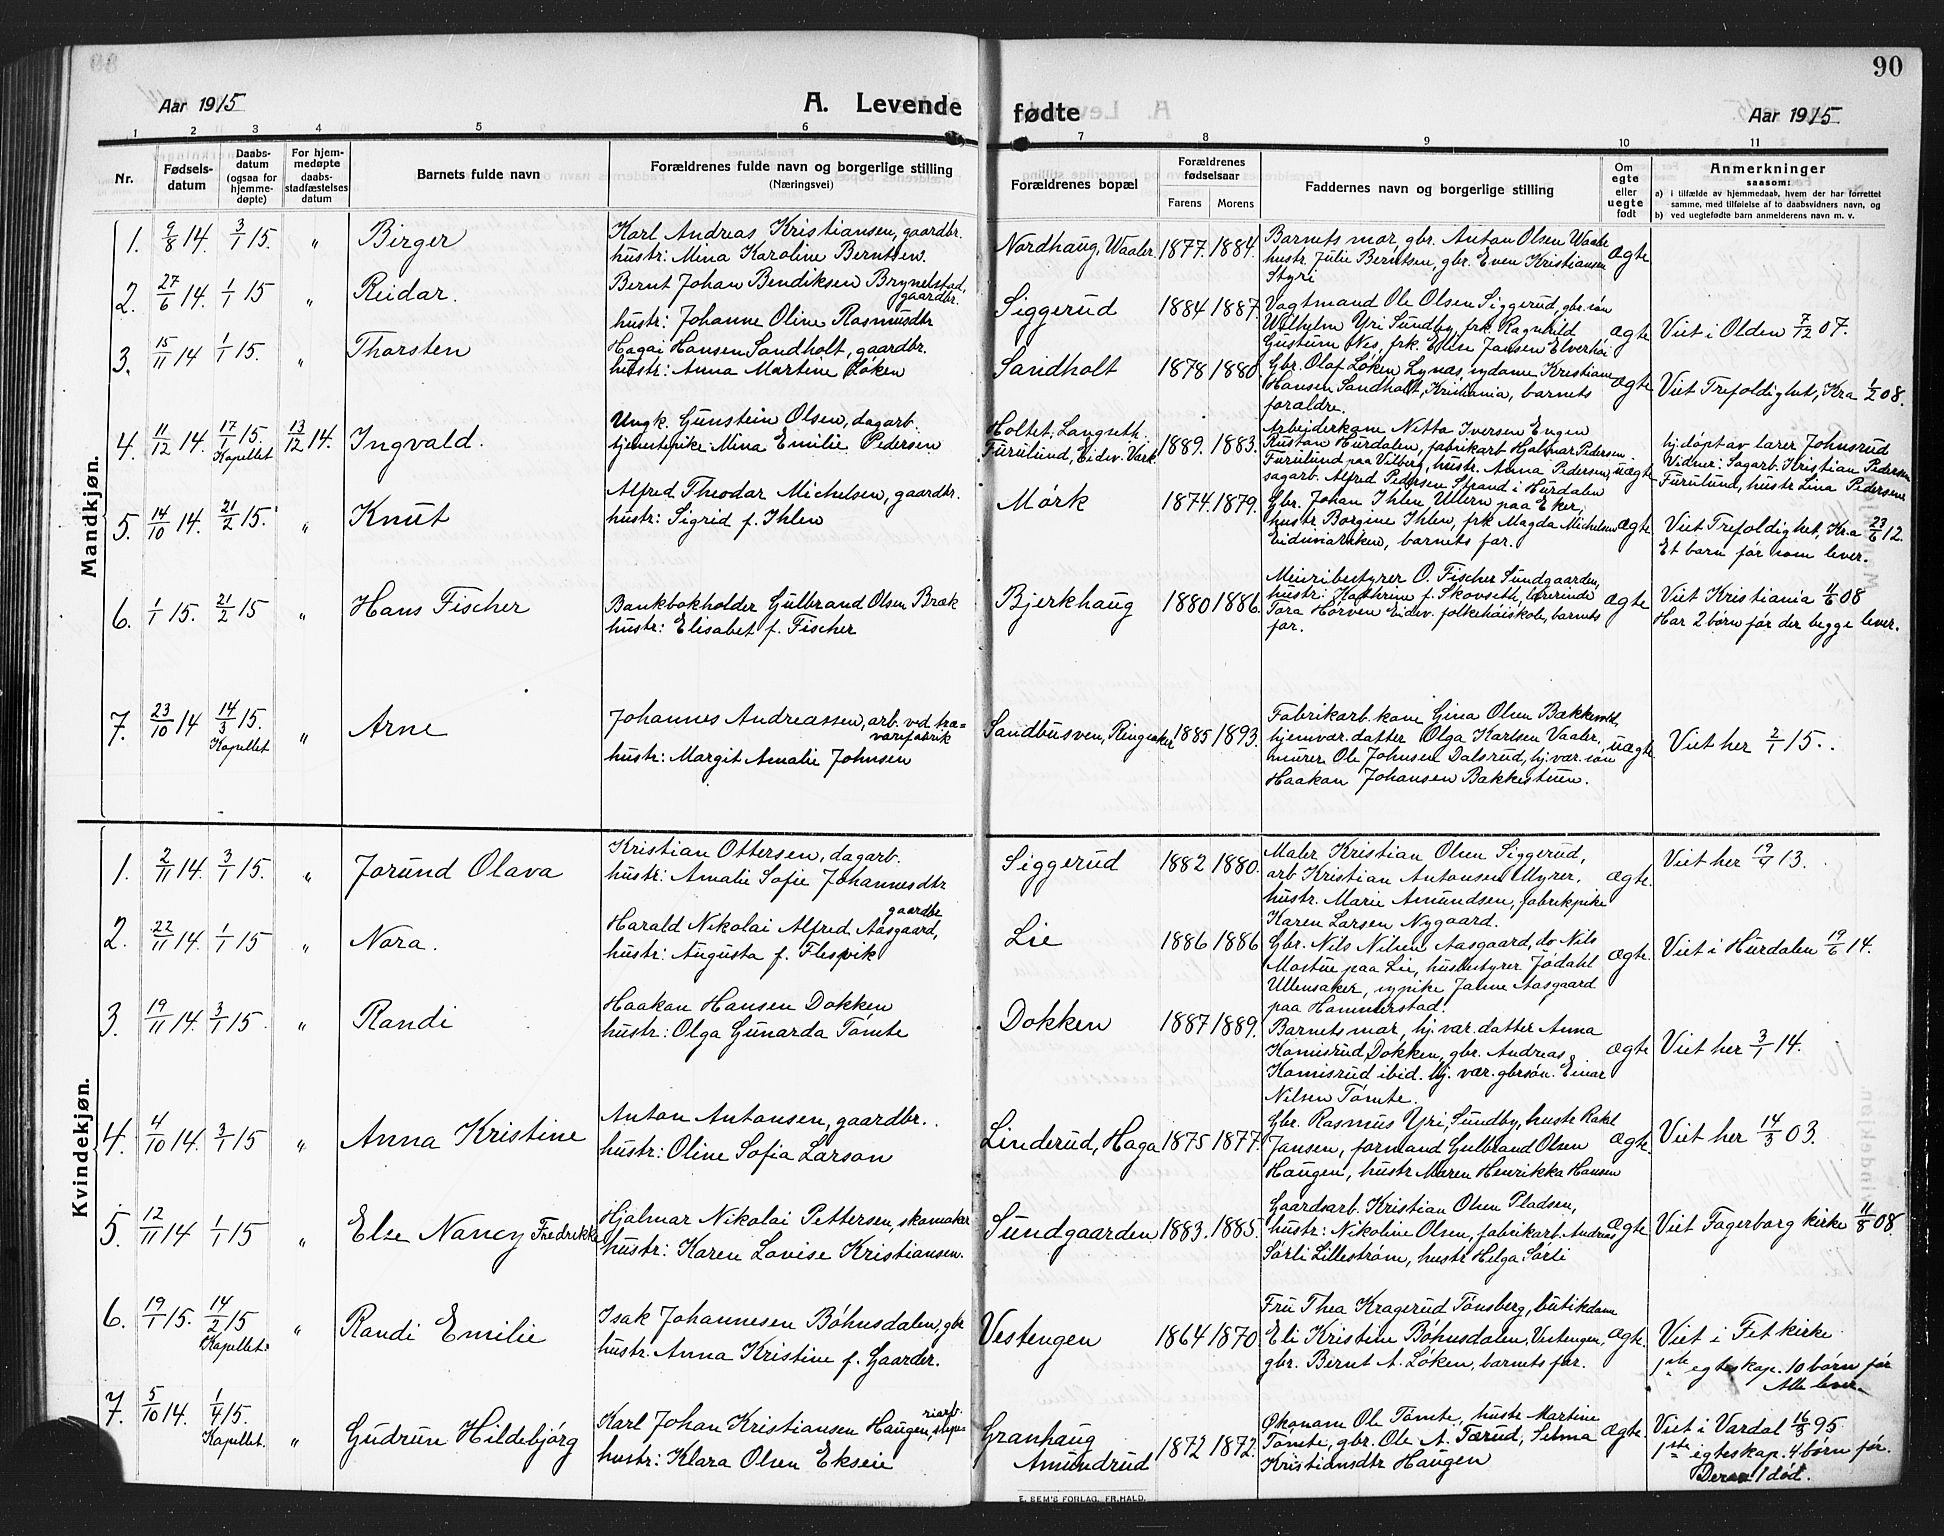 90
Aar 1915
A. Levende
fødte
Aar 1915
1 2 3 4 5 6 7 8 9 10 11
Nr.
Fødsels-
datum
Daabs-
datum
(ogsaa for
hjemme-
døpte)
For hjem-
medøpte
daabs-
stadfæstelses
datum
Barnets fulde navn
Forældrenes fulde navn og borgerlige stilling
(Næringsvei)
Forældrenes bopæl
Forældrenes
fødselsaar
Farens Morens
Faddernes navn og borgerlig stilling
Om
egte
eller
uegte
født
Anmerkninger
saasom:
a) i tilfælde av hjemmedaab, hvem der har forrettet
samme, med tilføielse af to daabsvidners navn, og
b) ved uegtefødte barn anmelderens navn m. v.
Mandkjøn.
1. 9/8 14. 3/1 15. " Birger
Karl Andreas Kristiansen, gaardbr.
hustr: Mina Karoline Berntsen.
Nordhaug, Waaler 1877. 1884.
Barnets mor, gbr. Anton Olsen Waale
hustr. Julie Berntsen, gbr. Even Kristiansen
Styri
ægte
2. 27/6 14. 1/1 15 " Reidar.
Bernt Johan Bendiksen Brynelstad,
gaardbr.
hustr: Johanne Oline Rasmusdtr
Siggerud 1884 1887.
Vagtmand Ole Olsen Siggerud, gbr. søn
Wilhelm Yri Sundby, frk. Ragnhild
Gusturn Nes, frk. Elise Jansen Elverhøi
ægte
Viet i Olden 7/12 07.
3. 15/11 14 1/1 15. " Thorsten
Hagai Hansen Sandholt, gaardbr.
hustr: Anna Martine Løken
Sandholt 1878 1880.
Gbr. Olaf Løken Lynæs, sydame Kristiane
Hansen Sandholt, Kristiania, barnets
forældre.
ægte
Viet Trefoldighet, Kra 1/2 08.
4. 11/12 14. 17/1 15. Kapellet 13/12 14. Ingvald.
Ungk. Gunstein Olsen, dagarb.
tjenestepike Mina Emilie Pedersen
Holtet, Langseth.
Furulund, Eidsv. Værk. 1889. 1883.
Arbeiderkone Netta Iversen Engen
Rustan Hurdalen, fabrikarb Hjalmar Pedersen.
Furulund paa Vilberg, hustr. Anna Pedersen,
sagarb. Alfred Pedersen Strand i Hurdalen
uægte
hj.døpt av lærer Johnsrud
Vidner: Sagarb. Kristian Pedersen
Furulund, hustr Lina Pedersen
5. 14/10 14. 21/2 15. " Knut
Alfred Theodor Michelsen, gaardbr.
hustr: Sigrid f. Ihlen
Mørk 1874. 1879.
Gbr. Johan Ihlen Ullern paa Eker,
hustr Borgine Ihlen, frk Magda Michelsen
Eidsviarken, barnets far.
ægte.
Viet Trefoldighet, Kra 23/6 12.
Et barn før som lever.
6. 1/1 15. 21/2 15 " Hans Fischer
Bankbokholder Gulbrand Olsen Bræk
hustr: Elisabet f. Fischer
Bjerkhaug 1880 1886.
Meieribestyrer O. Fischer Sundgaarden,
hustr: Kathrine f. Skovseth, lærerinde
Tora Hørven Eidsv. folkehøiskole, barnets
far.
ægte
Viet Kristiania 11/6 08
Har 2 børn før der begge lever.
7. 23/10 14 14/3 15. Kapellet " Arne
Johannes Andreassen, arb. ved træ=
varefabrik
hustr: Margit Amalie Johnsen
Sandbusven, Ringsaker 1885 1893.
Fabrikarb. kone Gina Olsen Bakkevold,
hjemvær. datter Olga Karlsen Vaaler,
murer Ole Johnsen Dalsrud, hj.vær. søn
Haakan Johansen Bakkestuen.
uægte.
Viet her 2/1 15.
Kvindekjøn.
1. 2/11 14. 3/1 15. " Jorund Olava
Kristian Ottersen, dagarb.
hustr: Amalie Sofie Johannesdtr
Siggerud 1882 1880.
Maler Kristian Olsen Siggerud,
arb Kristian Antonsen Myrer,
hustr. Marie Amundsen, fabrikpike
Karen Larsen Nygaard.
ægte.
Viet her 13.
2. 22/11 14. 1/1 15 " Nora.
gaardbr
Harald Nikolai Alfred Aasgaard,
hustr: Augusta f. Flesvik
Lie 1886 1886
Gbr. Nils Nilsen Aasgaard, do Nils
Mostue paa Lie, husbestyrer Jødahl
Ullensaker, sypike Jahne Aasgaard
paa Hammerstad.
ægte.
Viet i Hurdalen 19/6 14.
3. 19/11 14. 3/1 15. " Randi
Haakan Hansen Dokken
hustr: Olga Gunarda Tømte
Dokken 1887 1889.
Barnets mor, hj. vær. datter Anna
Komisrud Dokken, gbr. Andreas
Komisrud ibid. hj. vær. gbrsøn. Einar
Nilsen Tømte.
ægte
Viet her 3/1 14.
4. 4/10 14. 3/1 15 " Anna Kristine
Anton Antonsen, gaardbr.
hustr: Oline Sofia Larson
Linderud, Haga 1875 1877.
Gbr. Rasmus Yri, Sundby, hustr Rakel
Jansen, formand Gulbrand Olsen
Haugen, hustr Maren Henrikka Hansen
ægte.
Viet her 14/3 03.
5. 12/11 14 1/1 15 " Else Nancy Fredrikke
Hjalmar Nikolai Pettersen, skomaker
hustr: Karen Lovise Kristiansen.
Sundgaarden 1883. 1885.
Gaardsarb. Kristian Olsen Pladsen,
hustr: Nikoline Olsen, fabrikarb. Andreas
Sørli Lillestrøm, hustr Helga Sørli
ægte
Viet Fagerborg kirke 11/8 08.
6. 19/1 15. 14/2 15 Kapellet. " Randi Emilie
Isak Johannesen Bøhnsdalen, gbr
hustr. Anna Kristine f. Gaarder.
Vestengen 1864 1870.
Fru Thea Kragerud Tønsberg, butikdame
Eli Kristine Bøhnsdalen, Vestengen,
gbr. Bernt A. Løken, barnets far.
ægte.
Viet i Fet kirke
1ste egteskap. 10 børn før
Alle lever.
7. 5/10 14. 1/4 15. Kapellet. " Gudrun Hildebjørg
Karl Johan Kristiansen Haugen,
hustr: Klara Olsen Ekseie
Granhaug
Amundrud 1872 1872.
Økonom Ole Tømte, hustr Martine
Tømte, gbr. Ole A. Tærud, Selma
Kristiansdtr Haugen
ægte
Viet i Vardal 16/3 95
1ste egteskap. 4 børn før.
Derav 1 død.
E. SEM'S FORLAG, FR.HALD.